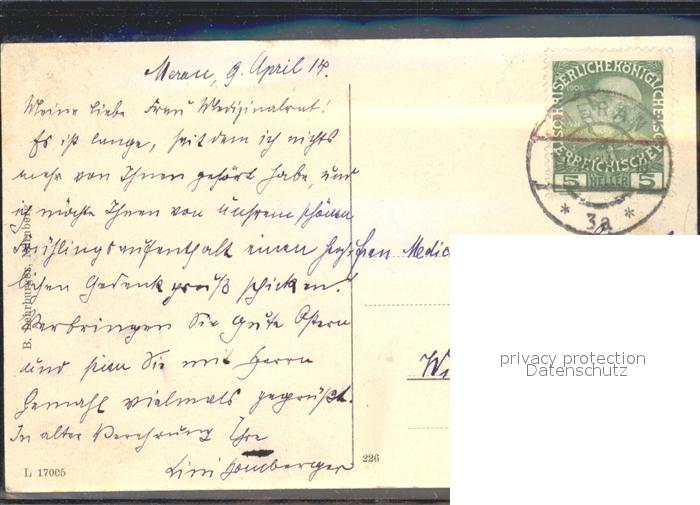 Meran, 9. April 14.
Meine liebe Frau Medizinalrat!
Es ist lange, seitdem ich nichts
mehr von Ihnen gehört habe, und
möchte Ihnen von unsrem schönen
Frühlingsaufenthalt einen herz-
lichen Gedenkgruß schicken.
Verbringen Sie gute Ostern
und seien Sie mit Herrn
Gemahl vielmals gegrüßt.
In alter Verehrung Ihre
Lini Homberger
B. Lehrburger, Nürnberg
L 17065
226
KAISERLICHE KÖNIGLICHE
ÖSTERREICHISCHE POST
1908
5 HELLER 5
MERAN
* 3a *
Frau Medic
privacy protection
Datenschutz